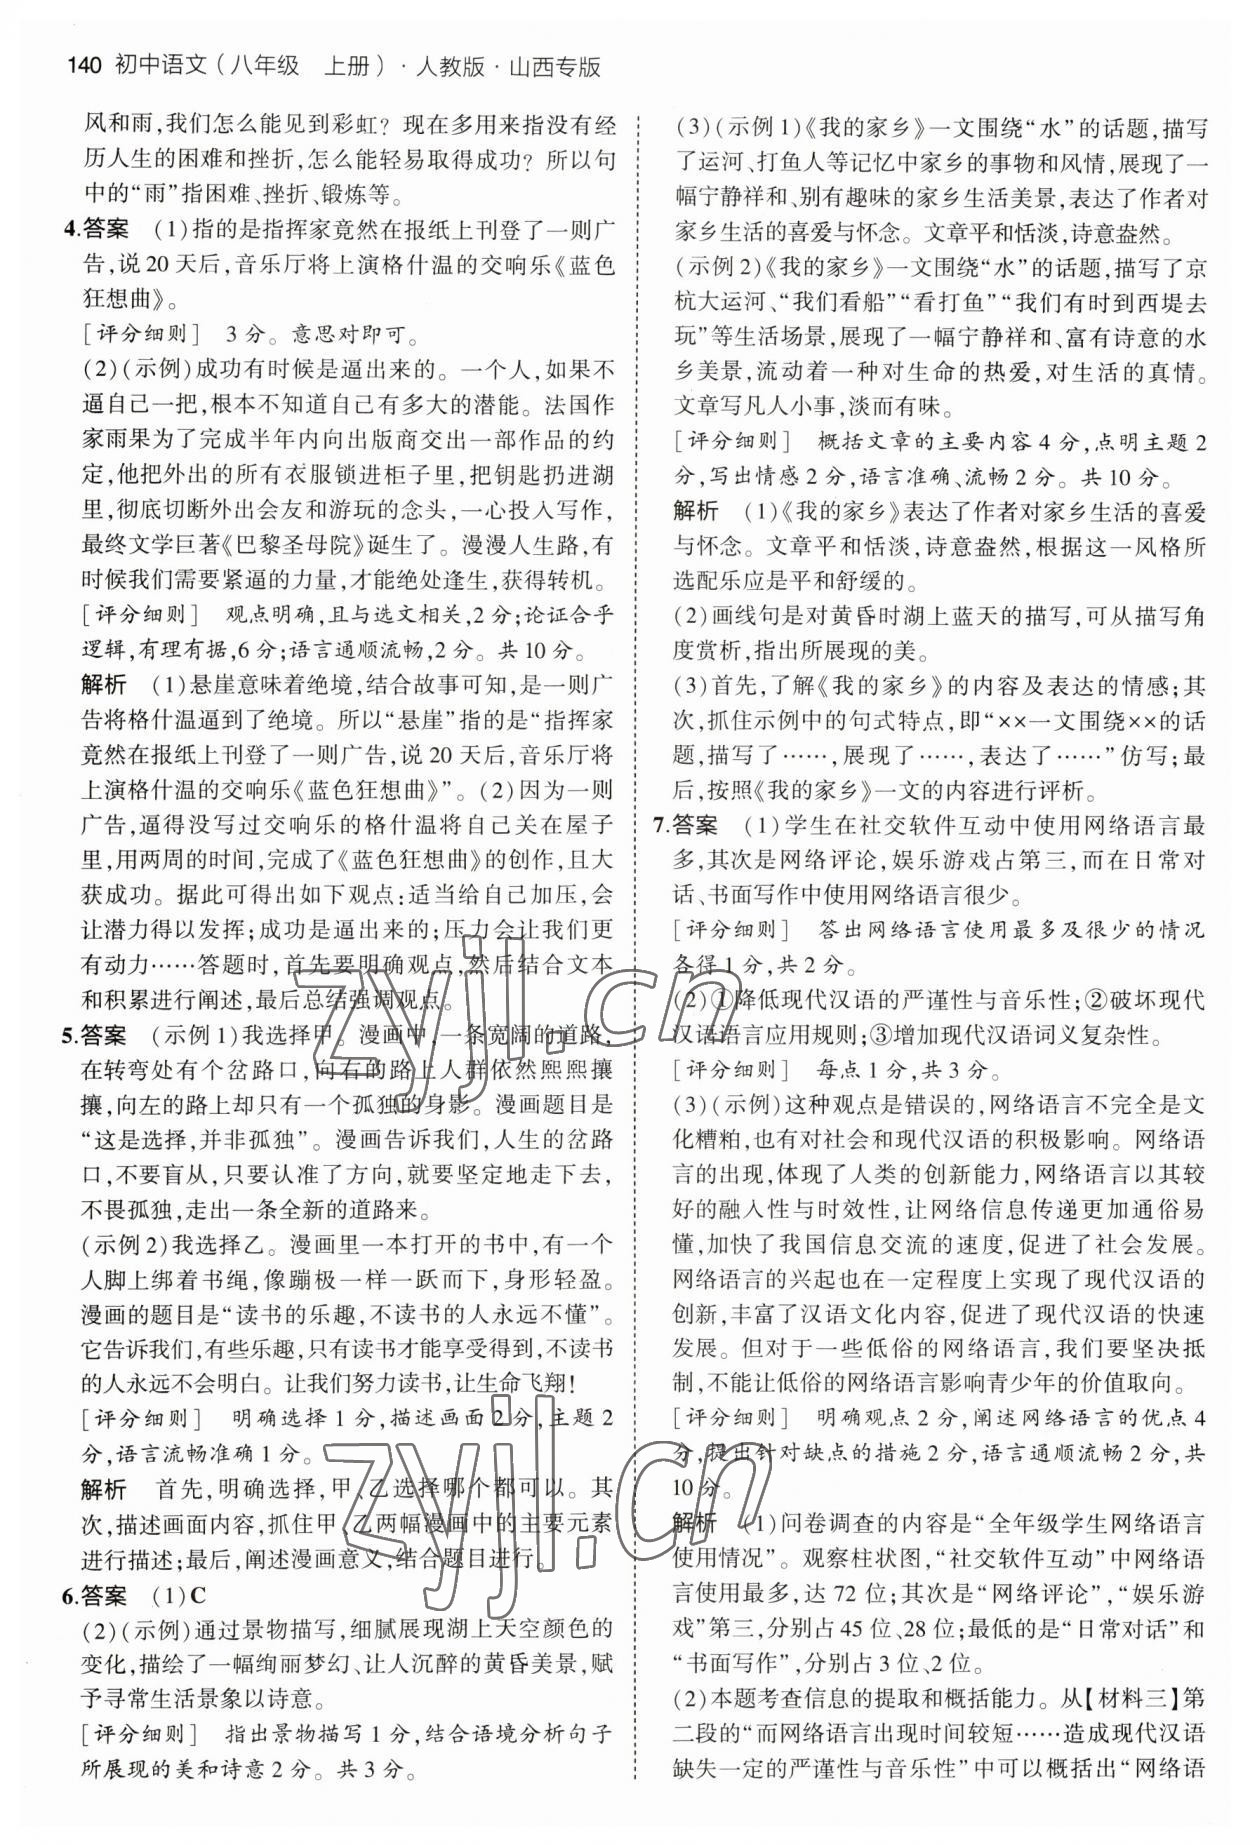 140 初中语文(八年级 上册)·人教版·山西专版
风和雨,我们怎么能见到彩虹? 现在多用来指没有经
历人生的困难和挫折,怎么能轻易取得成功? 所以句
中的“雨”指困难、挫折、锻炼等。
4.答案 (1)指的是指挥家竟然在报纸上刊登了一则广
告,说 20 天后,音乐厅将上演格什温的交响乐《蓝色
狂想曲》。
[评分细则] 3 分。意思对即可。
(2)(示例)成功有时候是逼出来的。一个人,如果不
逼自己一把,根本不知道自己有多大的潜能。法国作
家雨果为了完成半年内向出版商交出一部作品的约
定,他把外出的所有衣服锁进柜子里,把钥匙扔进湖
里,彻底切断外出会友和游玩的念头,一心投入写作,
最终文学巨著《巴黎圣母院》诞生了。漫漫人生路,有
时候我们需要紧逼的力量,才能绝处逢生,获得转机。
[评分细则] 观点明确,且与选文相关,2 分;论证合乎
逻辑,有理有据,6 分;语言通顺流畅,2 分。共 10 分。
解析 (1)悬崖意味着绝境,结合故事可知,是一则广
告将格什温逼到了绝境。所以“悬崖”指的是“指挥家
竟然在报纸上刊登了一则广告,说 20 天后,音乐厅将
上演格什温的交响乐《蓝色狂想曲》”。(2)因为一则
广告,逼得没写过交响乐的格什温将自己关在屋子
里,用两周的时间,完成了《蓝色狂想曲》的创作,且大
获成功。据此可得出如下观点:适当给自己加压,会
让潜力得以发挥;成功是逼出来的;压力会让我们更
有动力……答题时,首先要明确观点,然后结合文本
和积累进行阐述,最后总结强调观点。
5.答案 (示例 1)我选择甲。漫画中,一条宽阔的道路,
在转弯处有个岔路口,向右的路上人群依然熙熙攘
攘,向左的路上却只有一个孤独的身影。漫画题目是
“这是选择,并非孤独”。漫画告诉我们,人生的岔路
口,不要盲从,只要认准了方向,就要坚定地走下去,
不畏孤独,走出一条全新的道路来。
(示例 2)我选择乙。漫画里一本打开的书中,有一个
人脚上绑着书绳,像蹦极一样一跃而下,身形轻盈。
漫画的题目是“读书的乐趣,不读书的人永远不懂”。
它告诉我们,有些乐趣,只有读书才能享受得到,不读书
的人永远不会明白。让我们努力读书,让生命飞翔!
[评分细则] 明确选择 1 分,描述画面 2 分,主题 2
分,语言流畅准确 1 分。
解析 首先,明确选择,甲、乙选择哪个都可以。其
次,描述画面内容,抓住甲、乙两幅漫画中的主要元素
进行描述;最后,阐述漫画意义,结合题目进行。
6.答案 (1)C
(2)(示例)通过景物描写,细腻展现湖上天空颜色的
变化,描绘了一幅绚丽梦幻、让人沉醉的黄昏美景,赋
予寻常生活景象以诗意。
[评分细则] 指出景物描写 1 分,结合语境分析句子
所展现的美和诗意 2 分。共 3 分。
(3)(示例 1)《我的家乡》一文围绕“水”的话题,描写
了运河、打鱼人等记忆中家乡的事物和风情,展现了一
幅宁静祥和、别有趣味的家乡生活美景,表达了作者对
家乡生活的喜爱与怀念。文章平和恬淡,诗意盎然。
(示例 2)《我的家乡》一文围绕“水”的话题,描写了京
杭大运河、“我们看船”“看打鱼”“我们有时到西堤去
玩”等生活场景,展现了一幅宁静祥和、富有诗意的水
乡美景,流动着一种对生命的热爱,对生活的真情。
文章写凡人小事,淡而有味。
[评分细则] 概括文章的主要内容 4 分,点明主题 2
分,写出情感 2 分,语言准确、流畅 2 分。共 10 分。
解析 (1)《我的家乡》表达了作者对家乡生活的喜爱
与怀念。文章平和恬淡,诗意盎然,根据这一风格所
选配乐应是平和舒缓的。
(2)画线句是对黄昏时湖上蓝天的描写,可从描写角
度赏析,指出所展现的美。
(3)首先,了解《我的家乡》的内容及表达的情感;其
次,抓住示例中的句式特点,即“××一文围绕××的话
题,描写了……,展现了……,表达了……”仿写;最
后,按照《我的家乡》一文的内容进行评析。
7.答案 (1)学生在社交软件互动中使用网络语言最
多,其次是网络评论,娱乐游戏占第三,而在日常对
话、书面写作中使用网络语言很少。
[评分细则] 答出网络语言使用最多及很少的情况
各得 1 分,共 2 分。
(2)①降低现代汉语的严谨性与音乐性;②破坏现代
汉语语言应用规则;③增加现代汉语词义复杂性。
[评分细则] 每点 1 分,共 3 分。
(3)(示例)这种观点是错误的,网络语言不完全是文
化糟粕,也有对社会和现代汉语的积极影响。网络语
言的出现,体现了人类的创新能力,网络语言以其较
好的融入性与时效性,让网络信息传递更加通俗易
懂,加快了我国信息交流的速度,促进了社会发展。
网络语言的兴起也在一定程度上实现了现代汉语的
创新,丰富了汉语文化内容,促进了现代汉语的快速
发展。但对于一些低俗的网络语言,我们要坚决抵
制,不能让低俗的网络语言影响青少年的价值取向。
[评分细则] 明确观点 2 分,阐述网络语言的优点 4
分,提出针对缺点的措施 2 分,语言通顺流畅 2 分,共
10 分。
解析 (1)问卷调查的内容是“全年级学生网络语言
使用情况”。观察柱状图,“社交软件互动”中网络语
言使用最多,达 72 位;其次是“网络评论”,“娱乐游
戏”第三,分别占 45 位、28 位;最低的是“日常对话”和
“书面写作”,分别占 3 位、2 位。
(2)本题考查信息的提取和概括能力。从【材料三】第
二段的“而网络语言出现时间较短……造成现代汉语
缺失一定的严谨性与音乐性”中可以概括出“网络语
zyjl.cn
zyjl.cn